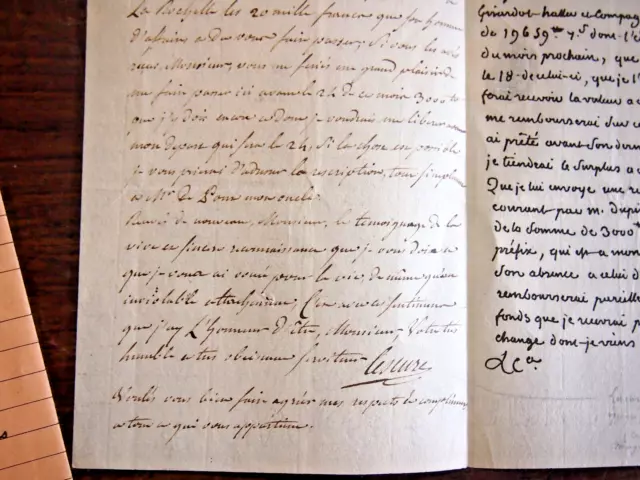 La Rochelle les 20 mille francs que son homme
d'affaire a du vous faire passer; Si vous les avés
reçus, Monsieur, vous me feriés un grand plaisir de
me faire passer ici avant le 24 de ce mois 3000 tt
que je dois encore et dont je voudrais me liberer avant
mon depart qui sera le 24, Si la chose est possible
je vous prierai d'adresser la rescription, tout simplement
a Mr. de P. pour mon oncle.
Recevés de nouveau, Monsieur, le temoignage de la
vive et sincere reconnaissance que je vous dois et
que je vous ai vouée pour la vie, de même qu'un
inviolable attachement. C'est avec ces sentimens
que j'ay L'honneur d'être, Monsieur, Votre très
humble et très obeissant serviteur Lescure
Voulés vous bien faire agréer mes respects et complimens
a tout ce qui vous appartient.
Girardot-haller et Compag
de 19659 tt 7 s dont l'é
du mois prochain, que
le 18 de celui-ci, que je l'
ferai recevoir la valeur a
me rembourserai sur ce
ai prêté avant son dern
je tiendrai le Surplus a
Que je lui envoye une re
courant par m. Dupi
de la Somme de 3000 tt
préfix, qui est a mon
Son absence a celui d
rembourserai pareille
fonds que je recevrai p
change dont je viens
&ca